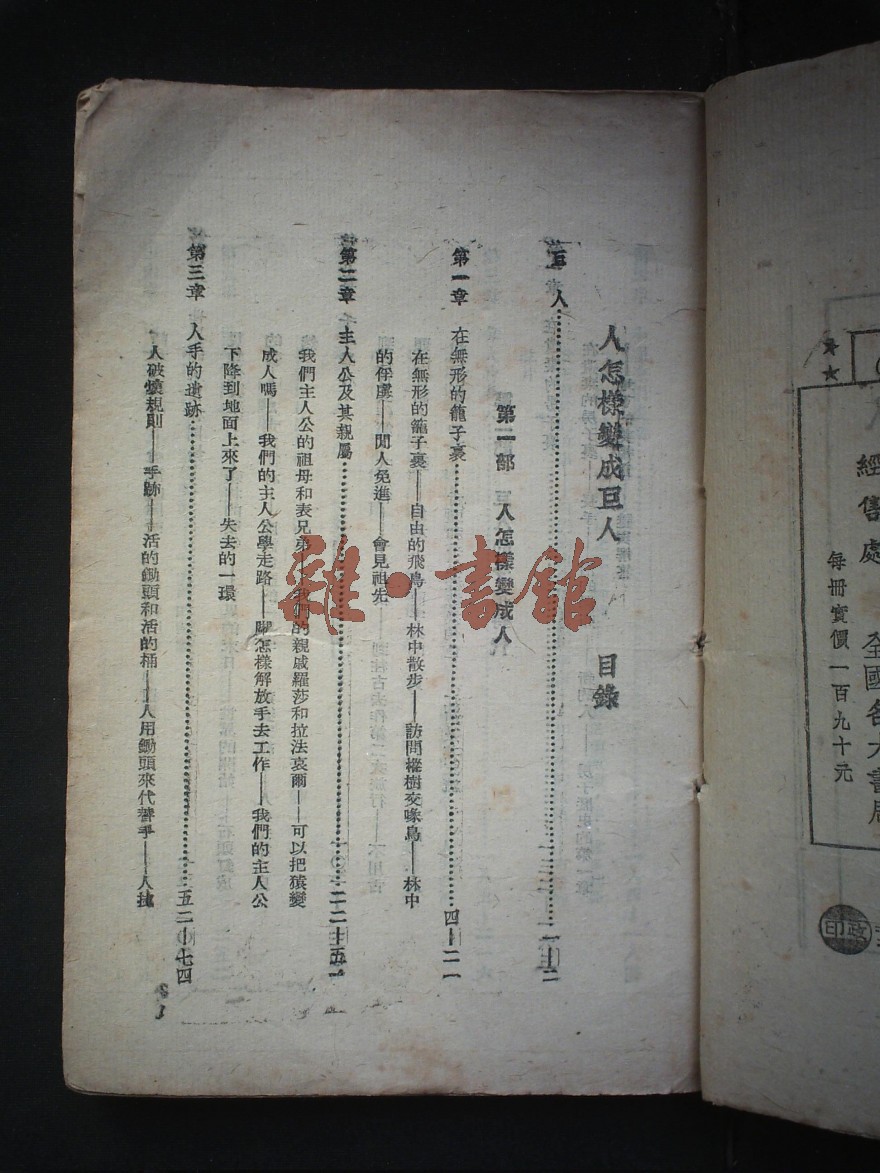 人怎樣變成巨人 目錄
巨人……一—二
第一部 人怎樣變成人
第一章 在無形的籠子裏……四—二一
在無形的籠子裏——自由的飛鳥——林中散步——訪問樅樹交喙鳥——林中
的俘虜——閒人免進——會見祖先
第二章 主人公及其親屬……二二—五一
我們主人公的祖母和表兄弟——我們的親戚羅莎和拉法哀爾——可以把猿變
成人嗎——我們的主人公學走路——腳怎樣解放手去工作——我們的主人公
下降到地面上來了——失去的一環
第三章 人手的遺跡……五二—七四
人破壞規則——手跡——活的鋤頭和活的桶——人用鋤頭來代替手——人
經售處 全國各大書局
每冊實價一百九十元
雜·書館